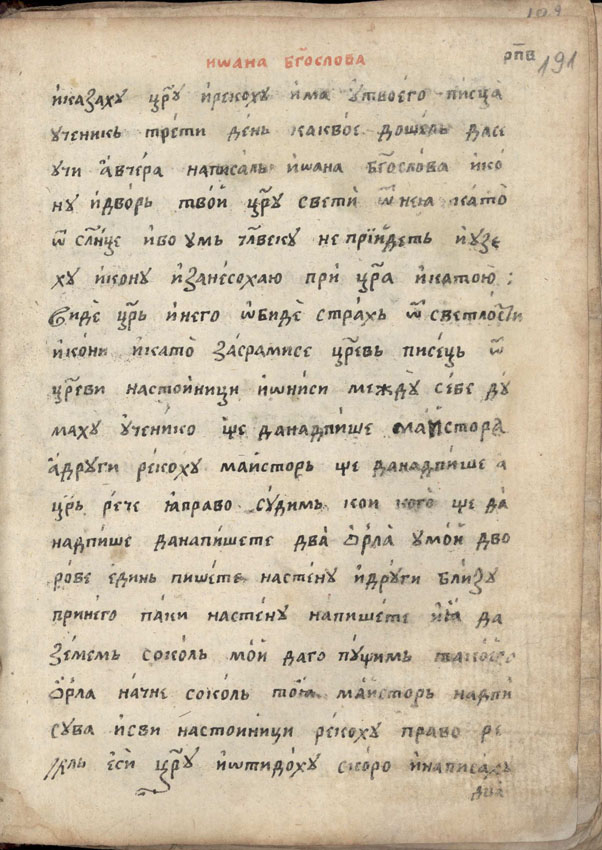 109
рп҃в 191
иѡана бг҃ослова
и҆казаху цр҃у и҆рекоху и҆ма ѹ҆твоего писца
ученикь трети день какво́е дошель дасе
учи а҆вчера написаль иѡана бг҃ослова и҆ко
ну и҆дворь твои цр҃у свети ѿ нею като̀
ѿ сл҃нце и҆бо умь чл҃веку не прїидеть и҆узе
ху и҆кону и҆занесохаю при цр҃а и҆катою :
виде цр҃ь и҆него ѡ҆биде страхь ѿ светлости
и҆кони и҆като̀ засрамисе цр҃евь писець ѿ
цр҃еви настоиници и҆ѡниси между себе ду
маху ѹ҆ченико ѱе данадпише маисторa
а҆други рекоху маисторь ѱе данадпише а
цр҃ь рече ꙗ҆право судимь кои кого ѱе да
надпише данапишете два ѻ҆рла умои дво
рове единь пишете настену и҆други близу
принего паки настену напишете и҆ꙗ да
земемь соколь мои даго пуѱимь
ѻ҆рла начне соколь тоꙗ маисторь надпи
сува и҆сви настоиници рекоху право ре
кль еси цр҃у и҆ѡтидоху скоро и҆написаху
два